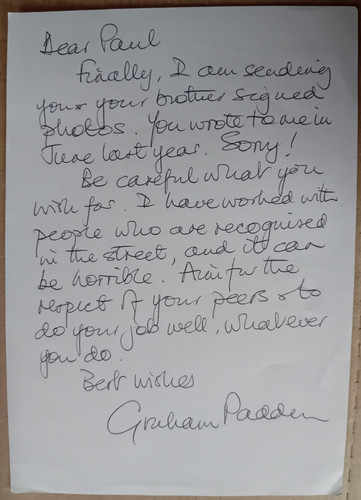 Dear Paul
Finally, I am sending
you & your brother signed
photos. You wrote to me in
June last year. Sorry!
Be careful what you
wish for. I have worked with
people who are recognised
in the street, and it can
be horrible. Aim for the
respect of your peers & to
do your job well, whatever
you do.
Best wishes
Graham Padden